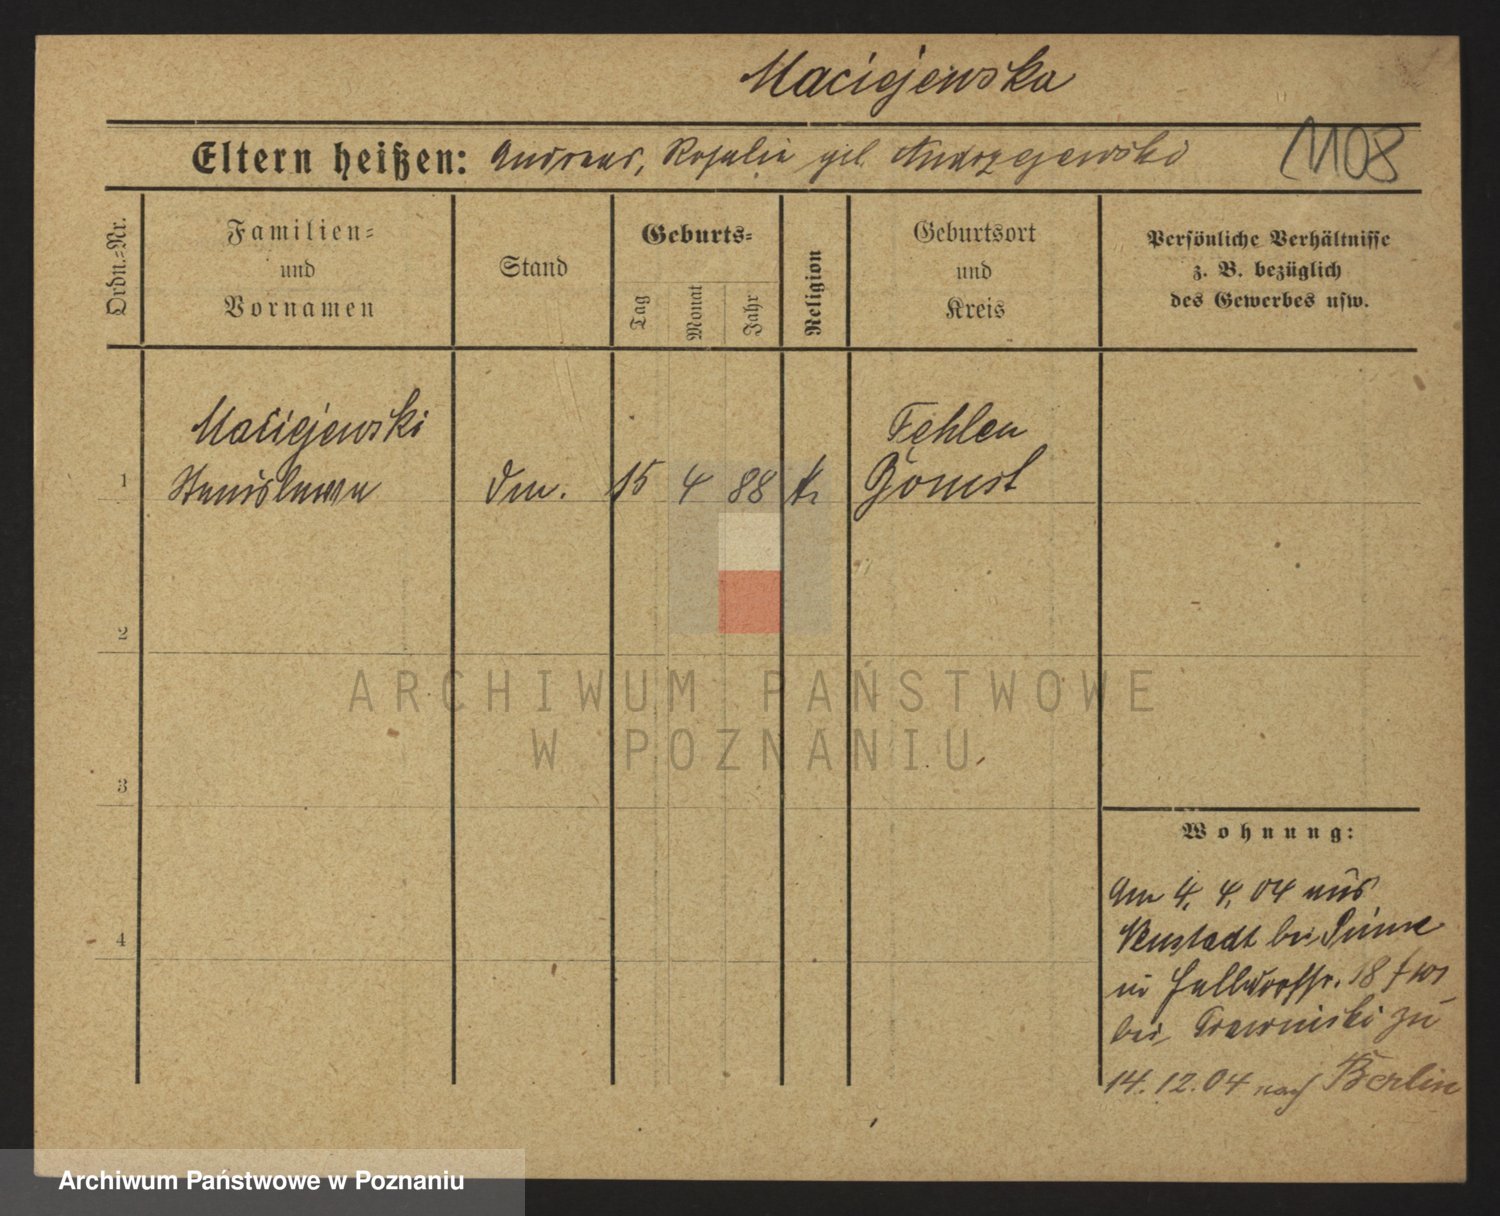 Maciejewska
Eltern heißen: Andreas, Rosalie geb. Andrzejewski
1108
Ordn.-Nr.
Familien- und Vornamen
Stand
Geburts-
Tag
Monat
Jahr
Religion
Geburtsort und Kreis
Persönliche Verhältnisse
z. B. bezüglich
des Gewerbes usw.
Maciejewski
Fehlen
1 Stanislawa 15 4 88 k. Bomst
2
3
4
ARCHIWUM PAŃSTWOWE
W POZNANIU
Wohnung:
Am 4. 4. 04 aus
Neustadt bei Pinne
in Halldorfstr. 18
bei zu
14.12.04 nach Berlin
Archiwum Państwowe w Poznaniu